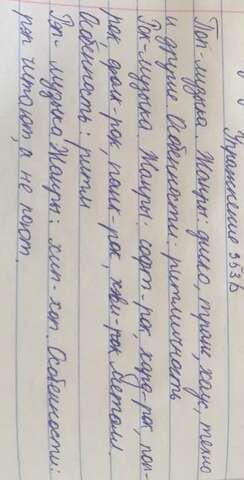 Упражнение 353Б
Поп-музыка. Жанры: диско, транс, хаус, техно
и другие. Особенности: ритмичность
Рок-музыка. Жанры: софт-рок, хард-рок, поп-
рок, фолк-рок, панк-рок, хэви-рок, металл.
Особенность: ритм
Рэп-музыка. Жанры: хип-хоп. Особенности:
рэп читают, а не поют.